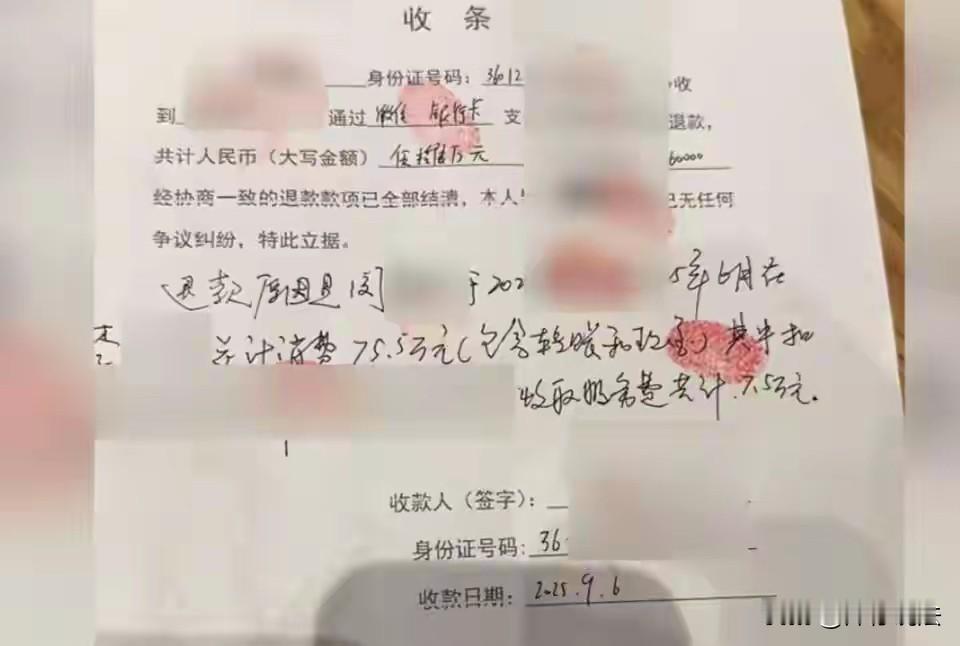 收 条
身份证号码：3612 收
到 通过 微信 银行卡 支 退款，
共计人民币（大写金额） 元 60000
经协商一致的退款款项已全部结清，本人 已无任何
争议纠纷，特此立据。
退款原因是 于202 5年6月在
共计消费75.5万元（包含 和 ）其中扣
收取服务费共计7.5万元。
收款人（签字）：
身份证号码：36
收款日期：2025.9.6